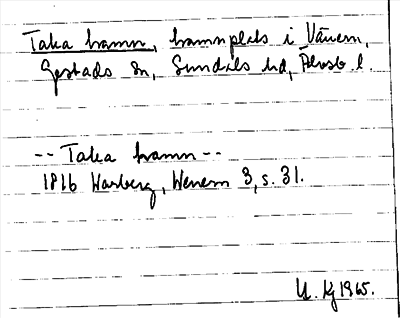 Taka hamn, hamnplats i Vänern,
Gestads sn, Sundals hd, Älvsb l.
-- Taka hamn --
1816 Warberg, Wenern 3, s. 31.
1965.